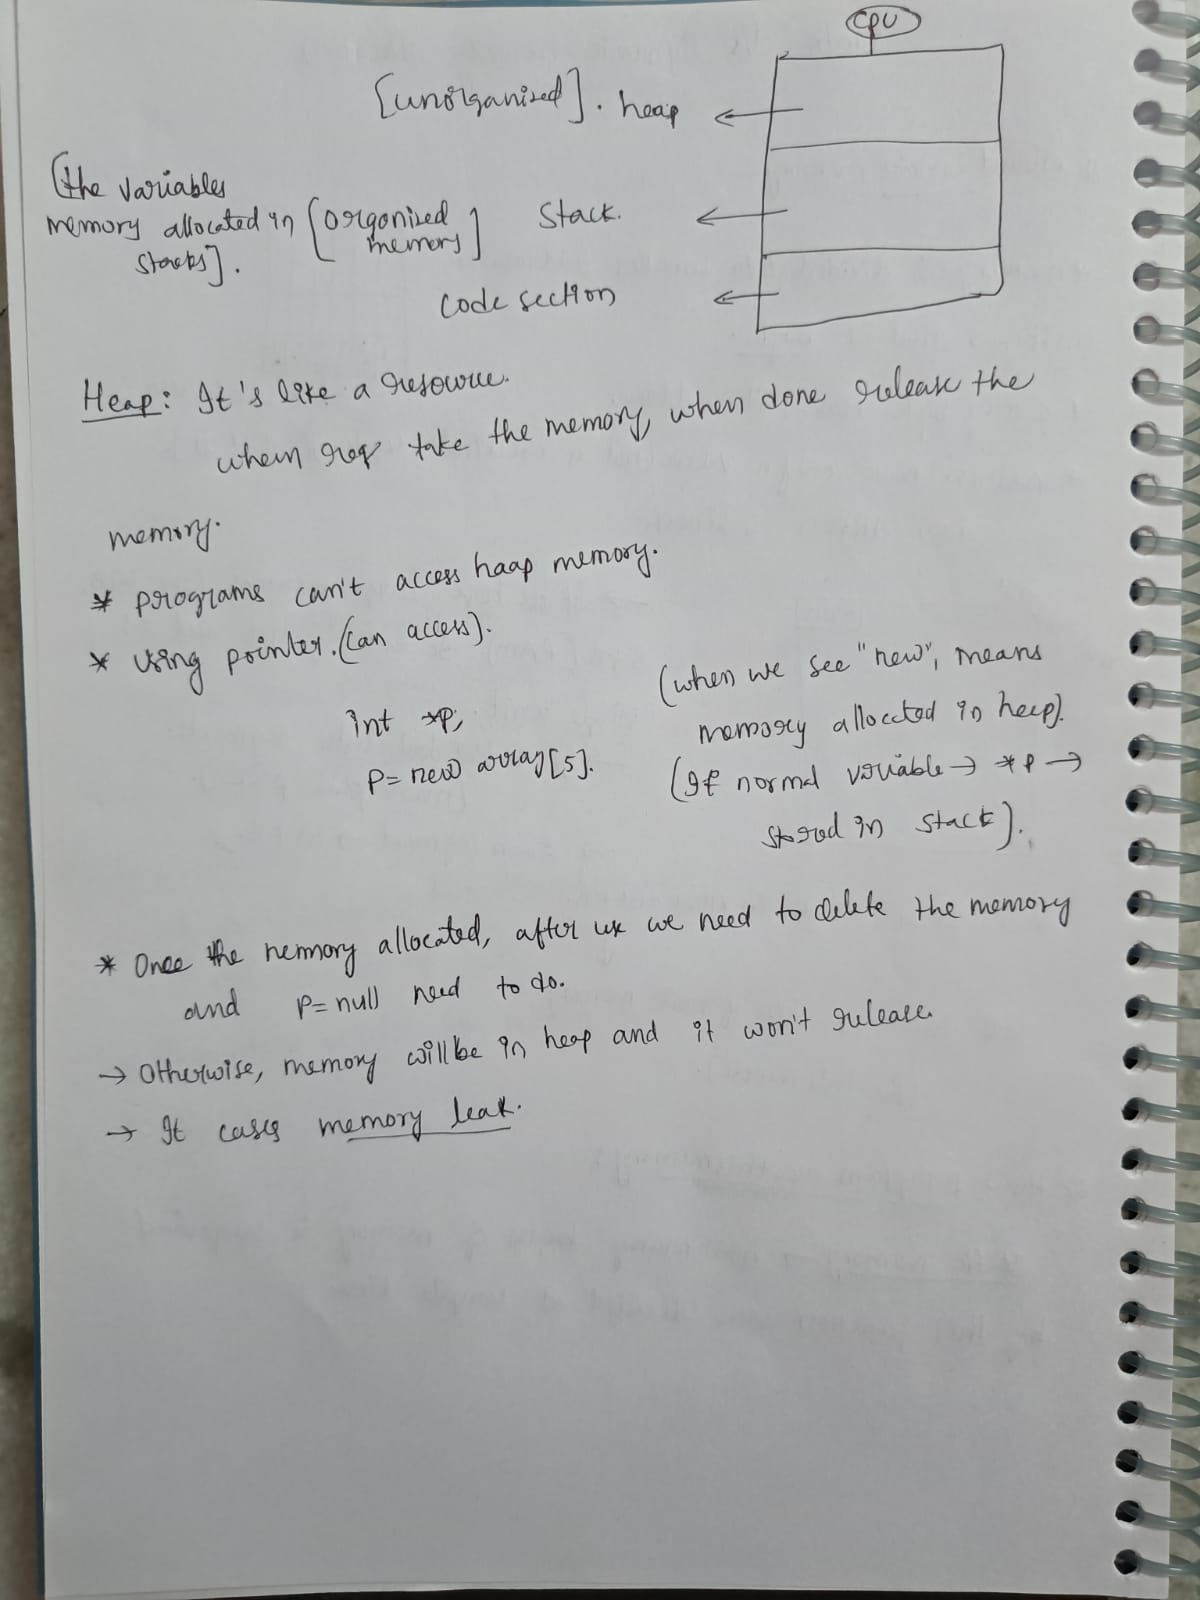 CPU
[unorganized]. heap
[the variables
memory allocated in [organized
memory] Stack.
stacks].
code section
Heap: It's like a resource.
when req take the memory, when done release the
memory.
* programs can't access haap memory.
* using pointer. (can access).
(when we see "new", means
int *p;
memory allocated in heep).
p= new array[5].
(If normal variable → *p →
stored in stack).
* Once the memory allocated, after use we need to delete the memory
and p=null need to do.
→ Otherwise, memory will be in heap and it won't release.
→ It cases memory leak.